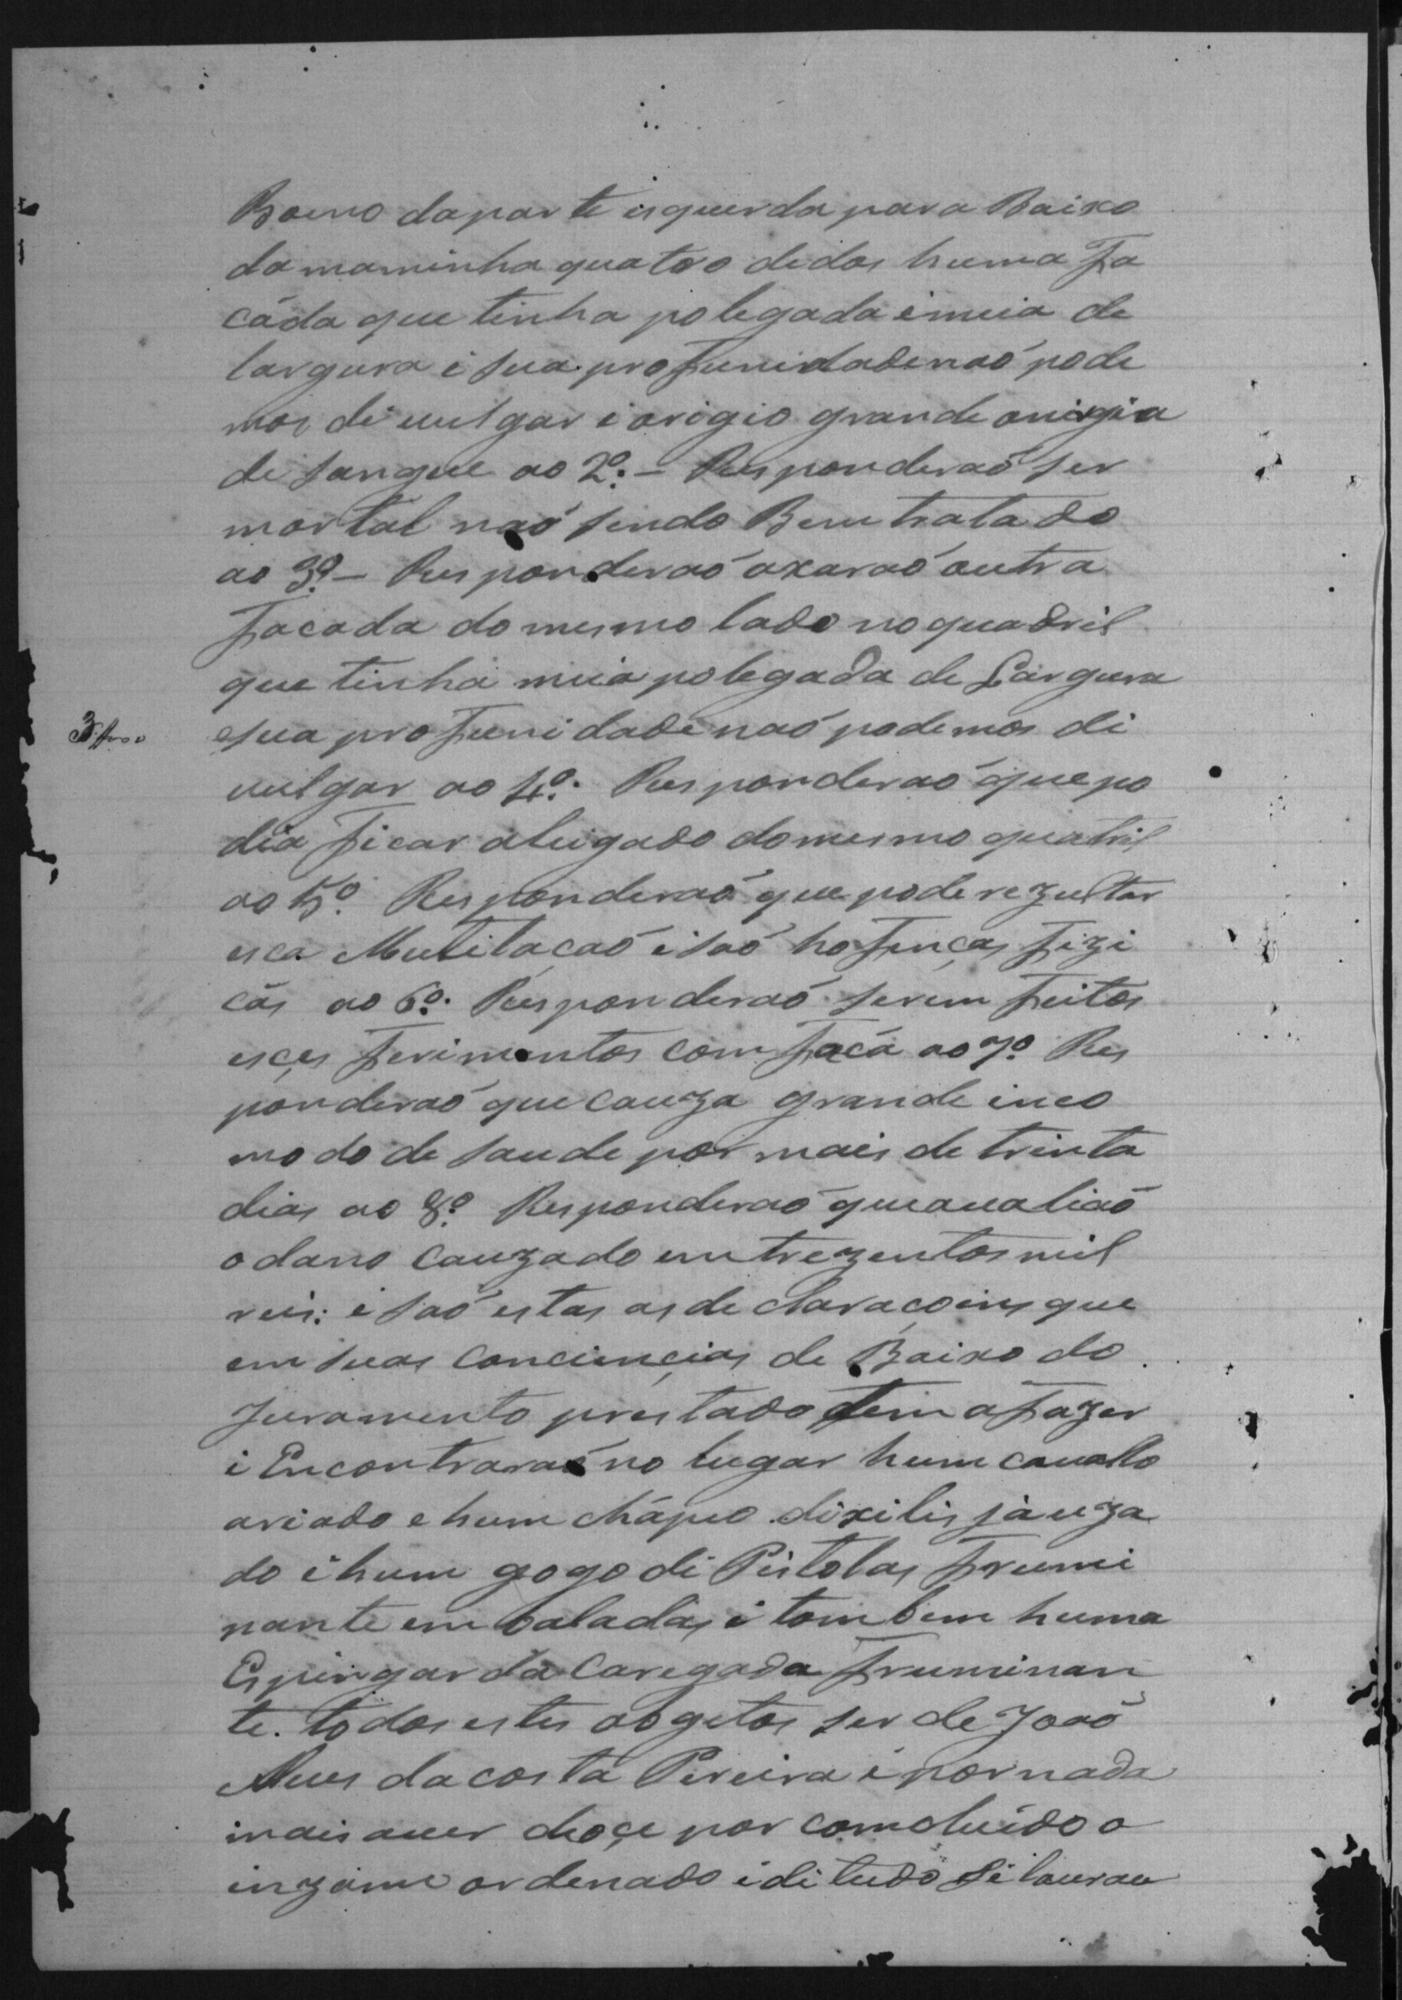 Boeno da parte esquerda para Baixo
da maminha quatro dedos huma fa
cáda que tinha polegada e meia de
largura i sua profunidade naó pode
mos di vulgar i origio grande
de sangue ao 2º: – Responderaó ser
mortal naó sendo Bem tratado
ao 3º – Responderaó axaraó outra
facada do mesmo lado no quadril
que tinha meia polegada de Largura
e sua profunidade naó podemos di
vulgar ao 4º: Responderaó que po
dia ficar aleigado do mesmo quatril
ao 5º. Responderaó que pode rezultar
esca Mutilacaó i saó hofenças fizi
cas ao 6º: Responderaó serem feitos
esçes ferimentos com facá ao 7º Res
ponderaó que cauza grande inco
modo de saude por mais de trinta
dias ao 8º Responderaó que avaliaó
o dano cauzado em trezentos mil
reis: i saó estas as declaraçoins que
em suas conciençias de Baixo do
Juramento prestado tem a fazer
i Encontraraó no lugar hum cavallo
ariado e hum chápeo dixilis já uza
do i hum gogo di Pistolas frumi
nante em baladas i tombem huma
Espingarda Caregada fruminan
te. todos estes obgetos ser de Joaó
Alves da costa Pereira i por nada
mais aver deoçe por comcluido o
inzame ordenado i di tudo Si lavrau